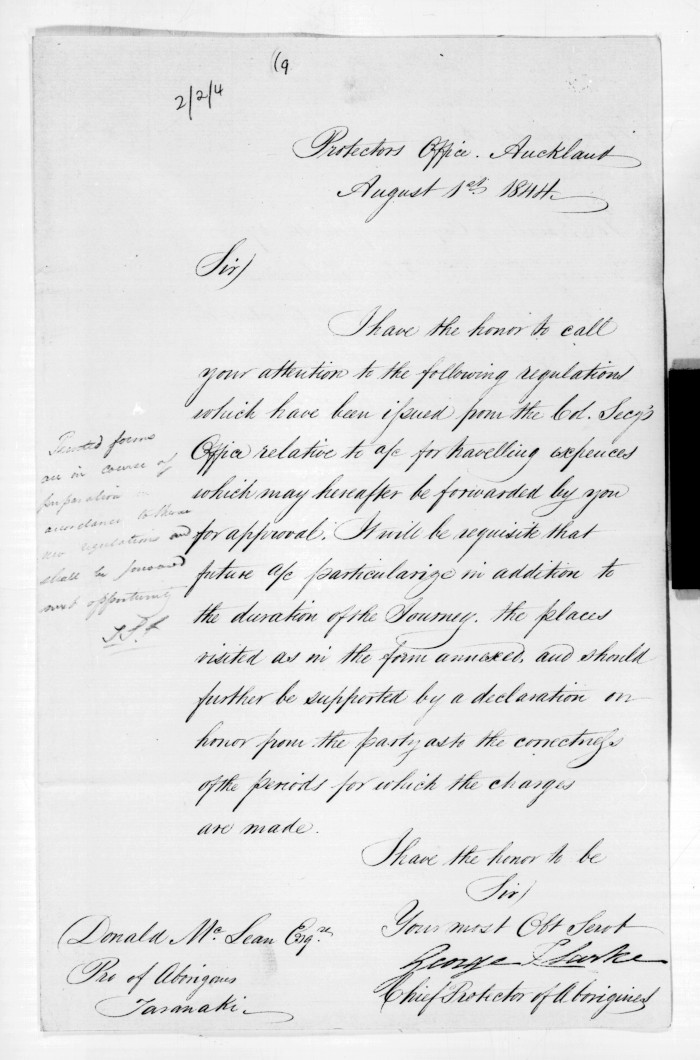 (9
2/2/4
Protectors Office. Auckland
August 1st 1844
Sir)
I have the honor to call
your attention to the following regulations
which have been issued from the Col. Secy's
Office relative to a/c for travelling expences
which may hereafter be forwarded by you
for approval. It will be requisite that
future a/c particularize in addition to
the duration of the Journey. the places
visited as in the form annexed, and should
further be supported by a declaration on
honor from the party as to the correctness
of the periods for which the charges
are made.
Printed forms
are in course of
preparation in
accordance to these
new regulations and
shall be forward
next opportunity
I have the honor to be
Sir)
Your most Obt Servt
George Clarke
Chief Protector of Aborigines
Donald Mc Lean Esqre
Pro of Aborigines
Taranaki